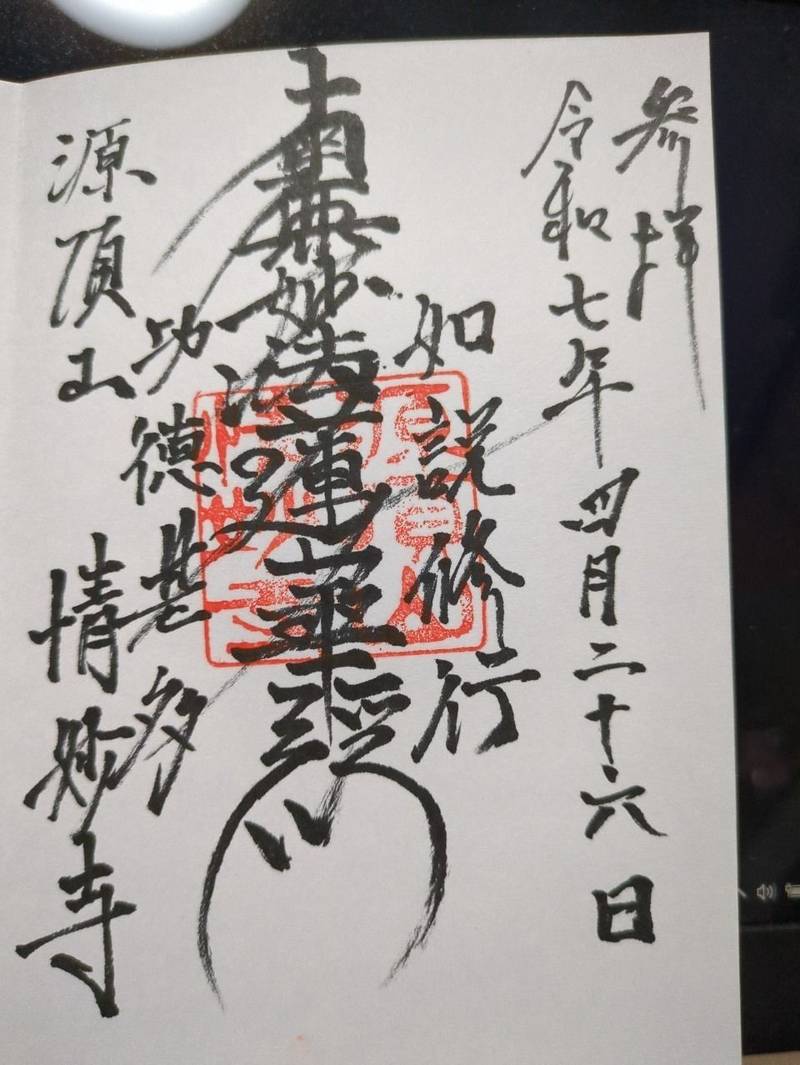 参拝
令和七年四月二十六日
如説修行
南無妙法蓮華経
功徳甚多
源頂山 情妙寺